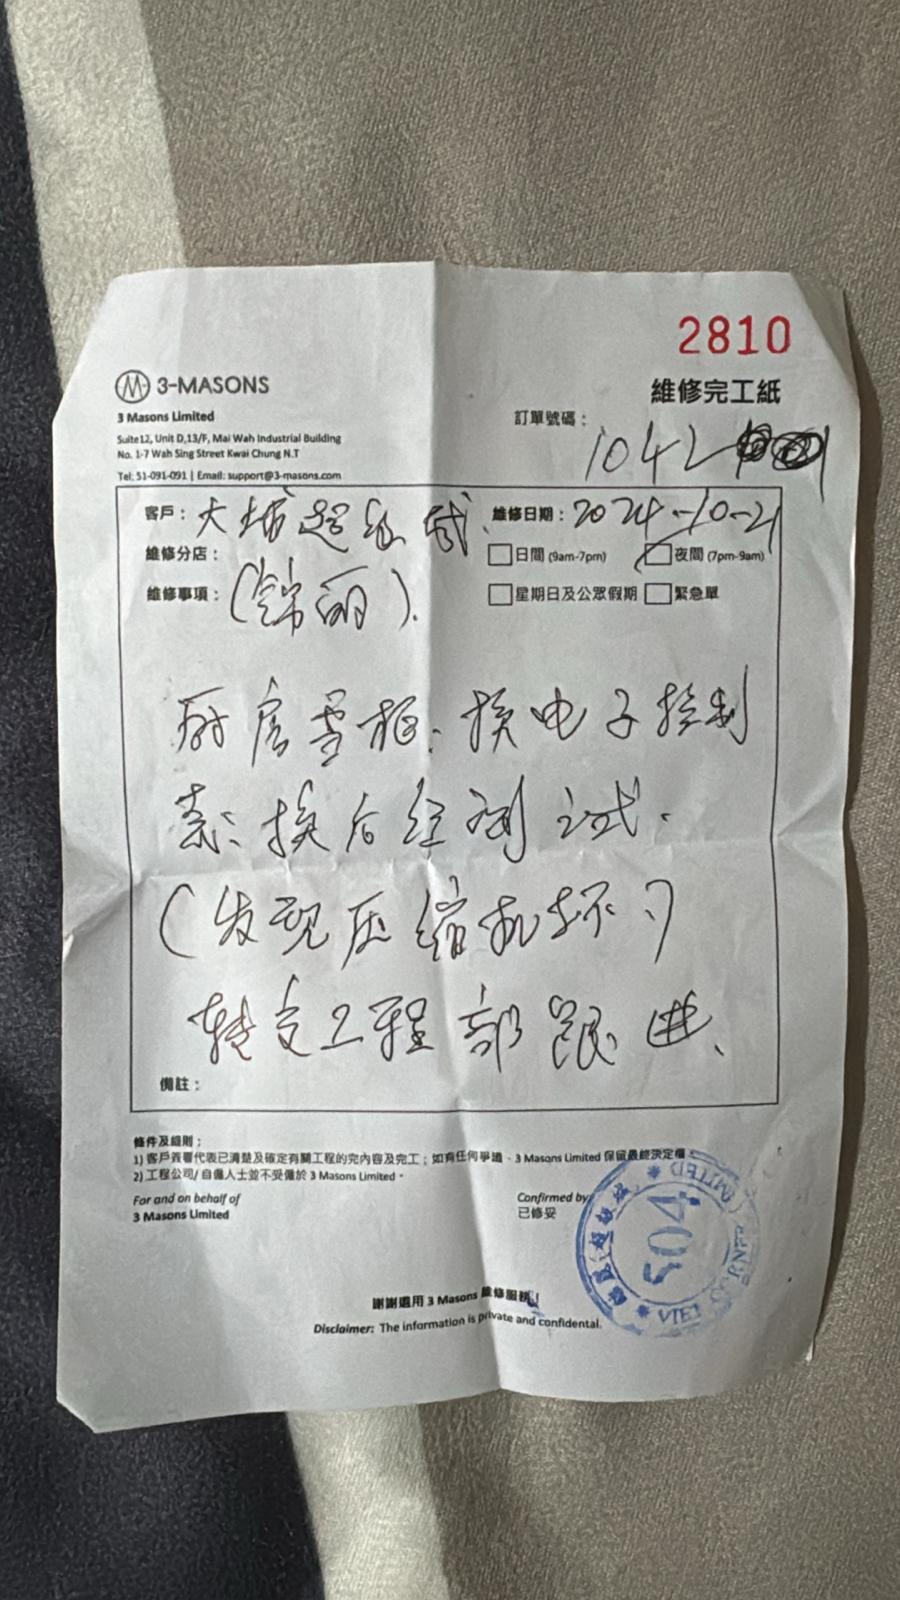 2810
3-MASONS
維修完工紙
3 Masons Limited
訂單號碼：
1042
Suite12, Unit D,13/F, Mai Wah Industrial Building
No. 1-7 Wah Sing Street Kwai Chung N.T
Tel: 51-091-091 | Email: support@3-masons.com
客戶：大埔超級城 維修日期：2024-10-21
維修分店： 日間 (9am-7pm) 夜間 (7pm-9am)
維修事項：(錦丽). 星期日及公眾假期 緊急單
厨房雪柜：换电子控制
换后经测试.
(发现压缩机坏)
转交工程部跟进、
備註：
條件及細則：
1) 客戶簽署代表已清楚及確定有關工程的完內容及完工；如有任何爭議，3 Masons Limited 保留最終決定權。
2) 工程公司/ 自僱人士並不受僱於 3 Masons Limited。
For and on behalf of
3 Masons Limited
Confirmed by
已修妥
504
謝謝選用 3 Masons 維修服務！
Disclaimer: The information is private and confidental.